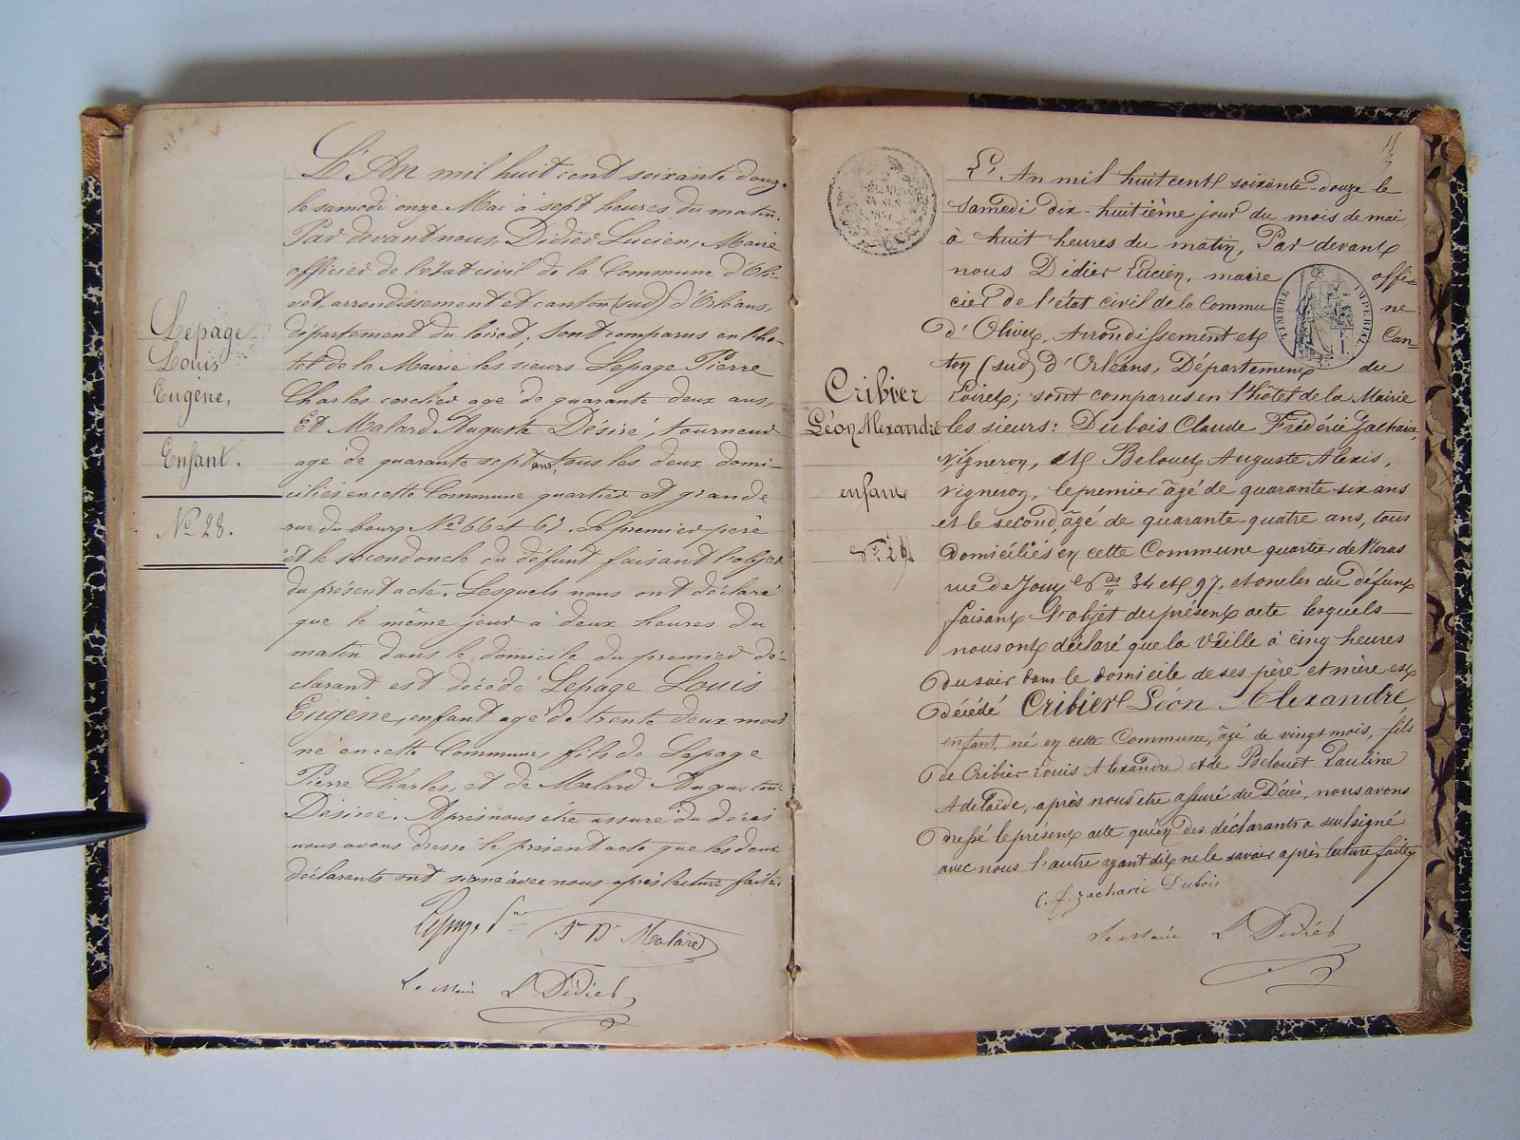 Lepage
Louis
Eugène,
Enfant.
No 28.
L'An mil huit cent soixante douze
le samedi onze Mai à sept heures du matin.
Par devant nous, Didier Lucien, Maire
officier de l'état civil de la Commune d'Oli-
vet, arrondissement et canton (sud) d'Orléans,
département du Loiret, sont comparus en l'hô-
tel de la Mairie les sieurs Lepage Pierre
Charles cerclier age de quarante deux ans,
Et Malard Auguste Désiré, tourneur
age de quarante sept ans, tous les deux domi-
ciliés en cette Commune quartier et grande
rue du bourg Nos 66 et 61. Le premier père
et le second oncle du défunt faisant l'objet
du présent acte. Lesquels nous ont déclaré
que le même jour à deux heures du
matin dans le domicile du premier dé-
clarant est décédé Lepage Louis
Eugène, enfant agé de trente deux mois
né en cette Commune, fils de Lepage
Pierre Charles, et de Malard Augustine
Désirée. Après nous être assuré du décès
nous avons dressé le présent acte que les deux
déclarants ont signé avec nous après lecture faite.
Lepage
Malard
Le Maire L Didier
L'An mil huit cent soixante-douze le
Samedi dix-huitième jour du mois de mai
à huit heures du matin, Par devant
nous Didier Lucien, maire offi-
cier de l'état civil de la Commu ne
d'Olivet, Arrondissement et Can-
ton (sud) d'Orléans, Département du
TIMBRE IMPERIAL
Cribier
Léon Alexandre
enfant
Loiret; sont comparus en l'hôtel de la Mairie
les sieurs: Dubois Claude Frédéric Zacharie,
vigneron, et Belouet Auguste Alexis,
vigneron, le premier âgé de quarante six ans
et le second, âgé de quarante quatre ans, tous
domiciliés en cette Commune quartier de
rue de Jouy Nos 34 et 97. et oncles du défunt
faisant l'objet du présent acte lesquels
nous ont déclaré que la veille à cinq heures
du soir dans le domicile de ses père et mère est
décédé Cribier Léon Alexandre
enfant, né en cette Commune, âgé de vingt mois, fils
de Cribier Louis Alexandre et de Belouet Pauline
Adelaïde, après nous être assuré du Décès, nous avons
dressé le présent acte qu'un des déclarants a seul signé
avec nous l'autre ayant dit ne le savoir après lecture faite
C. f. zacharie Dubois
Le Maire L Didier